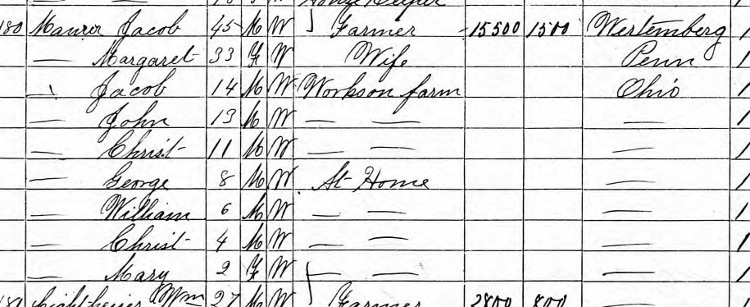 House Keeper
180 Maurer Jacob 45 M W Farmer 15500 1500 Wertemberg 1
— Margaret 33 F W Wife Penn 1
— Jacob 14 M W Works on farm Ohio 1
— John 13 M W — — — 1
— Christ 11 M W — — — 1
— George 8 M W At Home — 1
— William 6 M W — — — 1
— Christ 4 M W — — — 1
— Mary 2 F W — — — 1
181 Wm 27 M W Farmer 2800 800